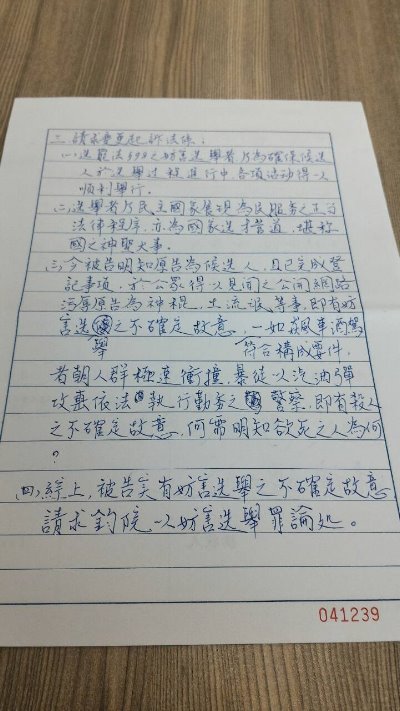 三、請求變更起訴法條：
(一)选罷法§98之妨害選舉者乃為確保候选
人於选舉过程進行中各項活动得以
順利舉行。
(二)选舉者乃民主國家展現為民服务之正當
法律程序，亦為國家选才管道，堪稱
國之神聖大事。
(三)今被告明知原告為候选人，且已完成登
記事項，於公眾得以見聞之公開網路
污辱原告為神棍、土流氓等事，即有妨
害选舉之不確定故意，一如飆車酒駕
符合構成要件，
者朝人群極速衝撞，暴徒以汽油彈
攻擊依法執行勤务之警察，即有殺人
之不確定故意，何需明知欲死之人為何
？
(四)綜上，被告实有妨害选舉之不確定故意，
請求鈞院以妨害选舉罪論処。
041239